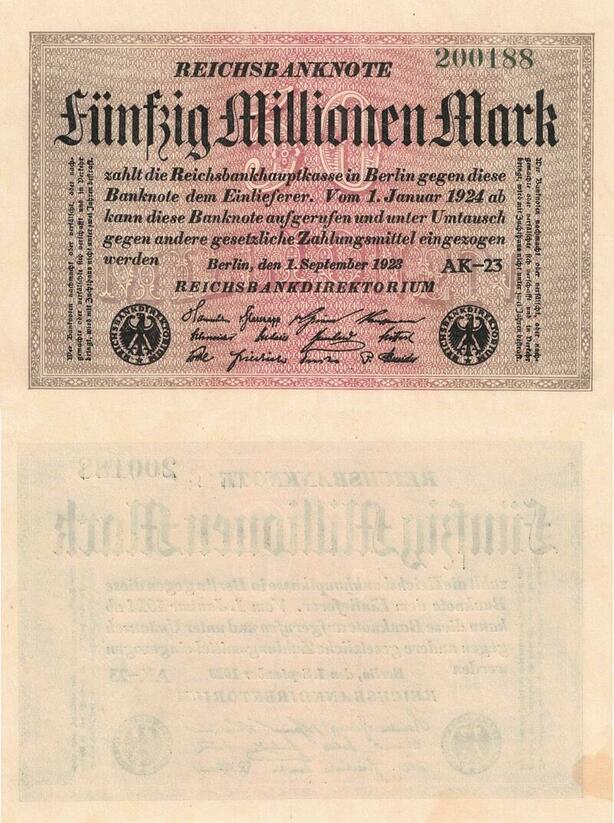 200188
REICHSBANKNOTE
Fünfzig Millionen Mark
zahlt die Reichsbankhauptkasse in Berlin gegen diese
Banknote dem Einlieferer. Vom 1. Januar 1924 ab
kann diese Banknote aufgerufen und unter Umtausch
gegen andere gesetzliche Zahlungsmittel eingezogen
werden
Berlin, den 1. September 1923
AK-23
REICHSBANKDIREKTORIUM
Wer Banknoten nachmacht oder verfälscht, oder nach-
gemachte oder verfälschte sich verschafft und in Verkehr
bringt, wird mit Zuchthaus nicht unter zwei Jahren bestraft.
Wer Banknoten nachmacht oder verfälscht, oder nach-
gemachte oder verfälschte sich verschafft und in Verkehr
bringt, wird mit Zuchthaus nicht unter zwei Jahren bestraft.
REICHSBANKDIREKTORIUM
REICHSBANKDIREKTORIUM